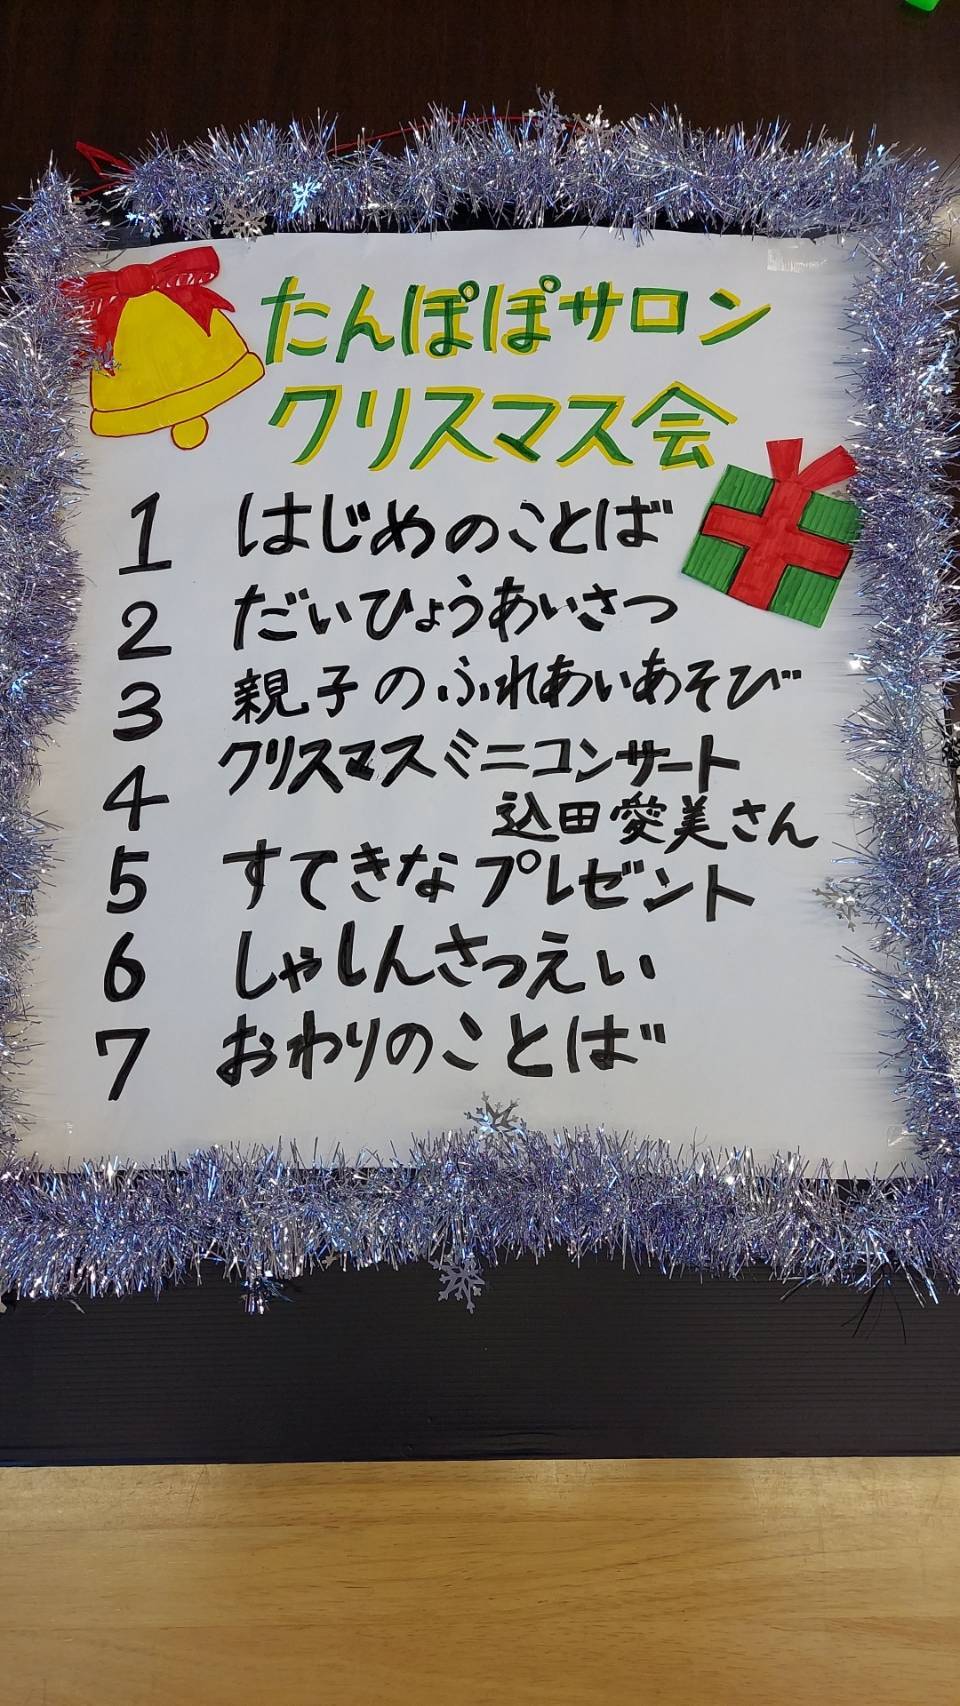 たんぽぽサロン
クリスマス会
1 はじめのことば
2 だいひょうあいさつ
3 親子のふれあいあそび
4 クリスマスミニコンサート
込田愛美さん
5 すてきなプレゼント
6 しゃしんさつえい
7 おわりのことば